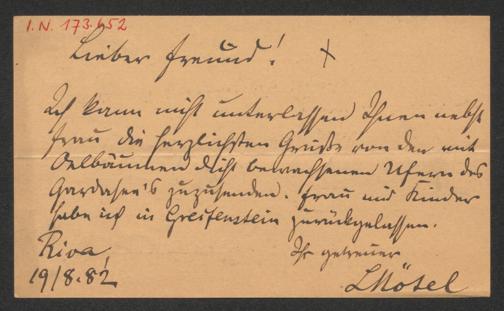 I.N. 173.652
Lieber Freund!
Ich kann nicht unterlassen Ihnen nebst
Frau die herzlichsten Grüße von den mit
Oelbäumen dicht bewachsenen Ufern des
Gardasee's zuzusenden. Frau und Kinder
habe ich in Greifenstein zurückgelassen.
Riva, Ihr getreuer
19/8.82 LMösel